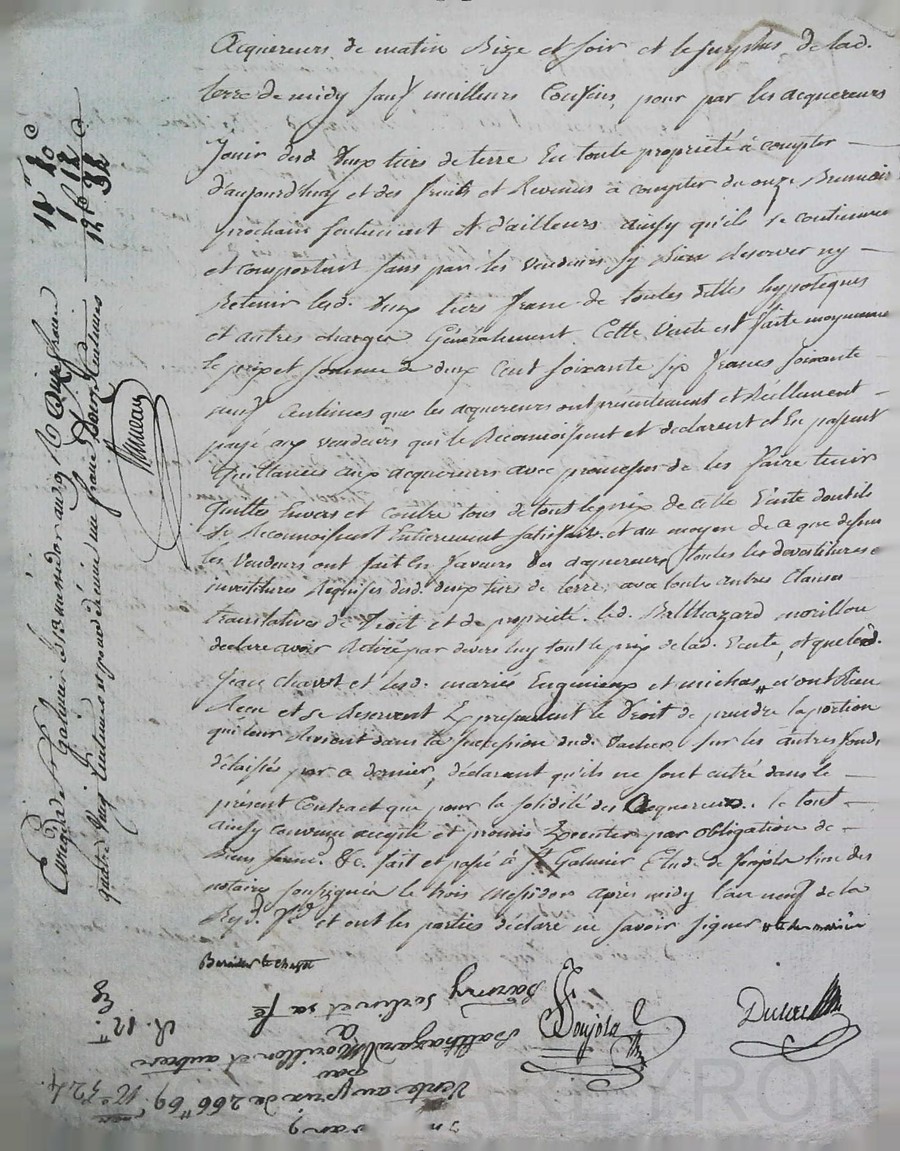 Acquereurs de matin Bize et soir et le surplus de lad.
terre de midy sauf meilleurs Confins, pour par les acquereurs
Jouir desd. deux tiers de terre En toute propriété à compter
d'aujourdhuy et des fruits et Revenus à compter du onze Brumair
prochain seulement et d'ailleurs ainsy qu'ils se contiennent
et comportent sans par les Vendeurs sy Rien reserver ny
Retenir lesd. deux tiers franc de toutes dettes hypoteques
et autres charges Généralement. Cette Vente est faite moyennant
le prix et somme de deux Cent soixante six francs soixante
neuf Centimes que les acquereurs ont présentement et Réellement
payé aux vendeurs qui le Reconnoissent et declarent et En passent
Quittances aux acquereurs avec promesses de les faire tenir
Quittes Envers et contre tous de tout le prix de cette Vente dont ils
se Reconnoissent Entierement satisfaits. et au moyen de ce que dessus
les Vendeurs ont fait En faveurs des acquereurs toutes les devestitures
investitures Requises desd. deux tiers de terre, avec toutes autres Clauses
translatives de Droit et de propriété. led. Balthazard morillon
declare avoir Retiré par devers luy tout le prix de lad. Vente, et que led.
Jean et lesd. mariés Eugenieux et michas n'ont Rien
Recu et se Reservent Expressement le Droit de prendre la portion
qui leur Revient dans la succession dud. sur les autres fonds
délaissés par ce dernier, déclarant qu'ils ne sont entré dans le
présent Contract que pour la solidité des Acquereurs. le tout
ainsy convenu accepté et promis Executer par obligation de
Biens &c. fait et passé à St Galmier Etude de Poujola l'un des
notaires soussignés le trois Messidor après midy l'an neuf de la
Rep. et ont les parties déclaré ne savoir signer
Poujola
Duc
Enregistré à St Galmier le messidor an 9
quatre francs Centimes
20 c
12
32
Vente au prix de 266 69
par
Balthazard Morillon et autres
à
Barthmy et sa fe
R. 12
N° 324